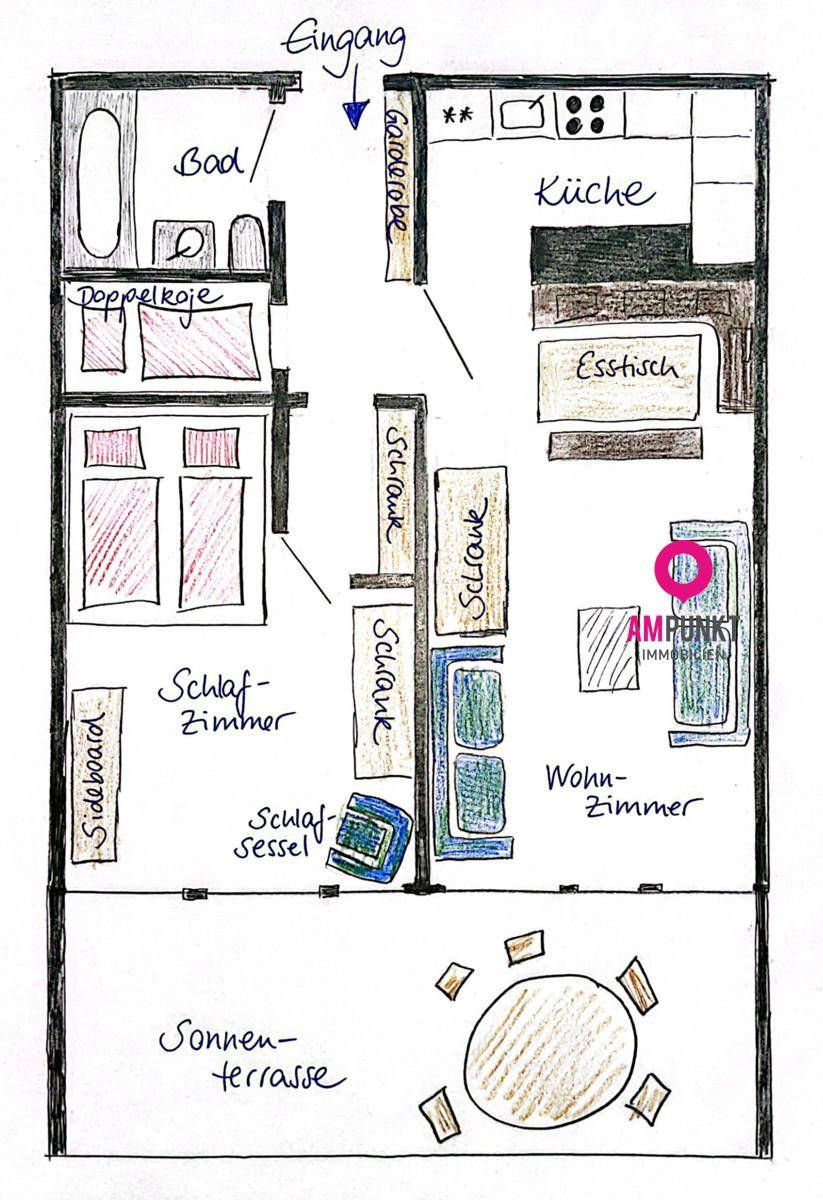 Eingang
Bad
Garderobe
**
Küche
Doppelkoje
Esstisch
Schrank
Schrank
Schrank
AMPUNKT
IMMOBILIEN
Schlaf-
Zimmer
Sideboard
Wohn-
Zimmer
Schlaf-
sessel
Sonnen-
terrasse